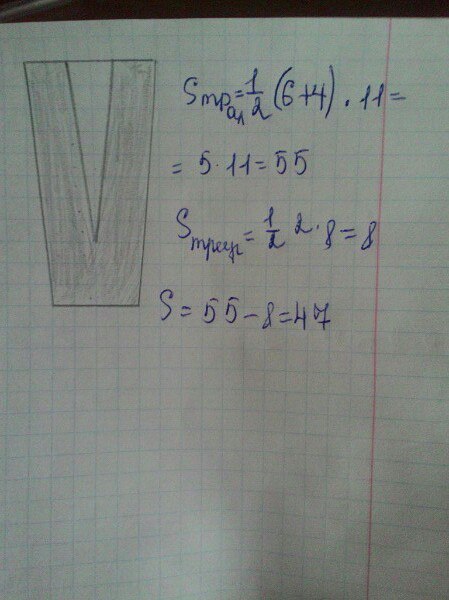 Sтрап=1/2(6+4)·11=
=5·11=55
Sтреуг=1/2 2·8=8
S=55-8=47